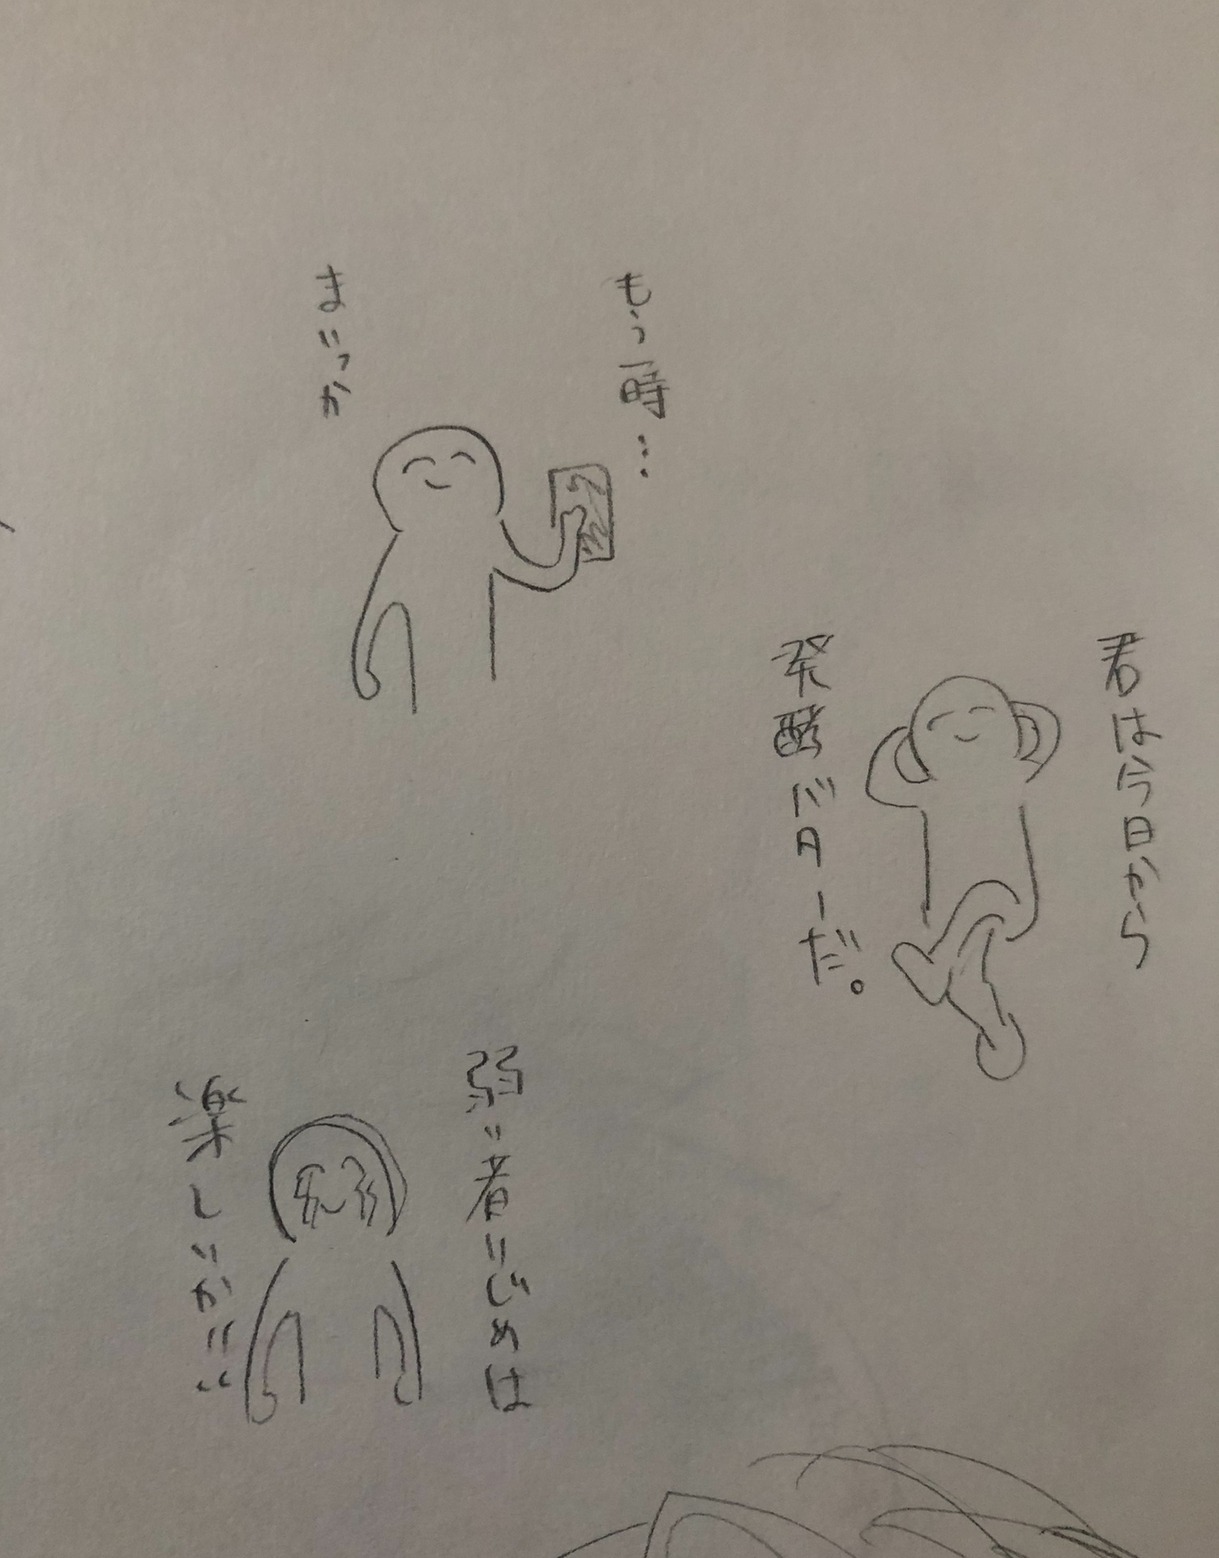 もう一時…
まいっか
君は今日から
発酵バターだ。
弱い者いじめは
楽しいかいい